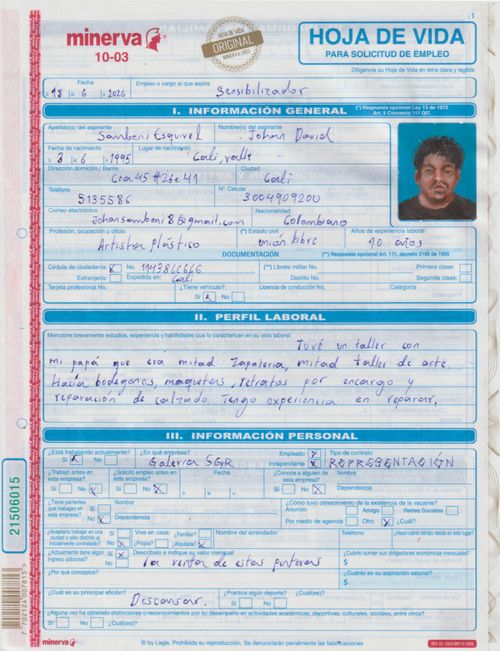 1
minerva
10-03
HOJA DE VIDA
ORIGINAL
MINERVA 1003
HOJA DE VIDA
PARA SOLICITUD DE EMPLEO
Diligencie su Hoja de Vida en letra clara y legible
Fecha
Empleo o cargo al que aspira
18 6 2026 Sensibilizador
I. INFORMACIÓN GENERAL
(*) Respuesta opcional Ley 13 de 1972
Art. 5 Convenio 111 OIT.
Apellido(s) del aspirante
Nombre(s) del aspirante
Samboni Esquivel Johan David
Fecha de nacimiento
Lugar de nacimiento
3 6 1995 Cali, valle
Dirección domicilio / Barrio
Ciudad
Cra 45 #26e41 Cali
Teléfono
N°. Celular
5135586 3004909200
Correo electrónico
Nacionalidad
johansamboni8@gmail.com Colombiano
Profesión, ocupación u oficio
(*) Estado civil
Años de experiencia laboral
Artista plástico unión libre 10 años
DOCUMENTACIÓN
(**) Respuesta opcional Art. 111, decreto 2150 de 1995
Cédula de ciudadanía: X No. 1143866666
(**) Libreta militar No.
Primera clase:
Extranjería: Expedida en: Cali
Distrito No.
Segunda clase:
Tarjeta profesional No.
¿Tiene vehículo?
Licencia de conducción No.
Categoría
Sí X No
II. PERFIL LABORAL
Mencione brevemente estudios, experiencia y habilidades que lo caractericen en su vida laboral
Tuvé un taller con
mi papá que era mitad Zapateria, mitad taller de arte.
Hacía bodegones, maquetas, retratos por encargo y
reparación de calzado. Tengo experiencia en reparar.
III. INFORMACIÓN PERSONAL
¿Está trabajando actualmente?
¿En qué empresa?
Empleado X
Tipo de contrato
Sí X No Galeria SGR Independiente X REPRESENTACIÓN
¿Trabajó antes en
esta empresa?
¿Solicitó empleo antes en
esta empresa?
Fecha
¿Conoce a alguien de
esta empresa?
Nombre
Sí No X
Sí No X
Sí No X
Dependencia
¿Tiene parientes
que trabajan en
esta empresa?
Nombre
¿Cómo tuvo conocimiento de la existencia de la vacante?
Anuncio Amigo Redes Sociales
Sí No X Dependencia
Por medio de agencia Otro X ¿Cuál?
¿Aceptaría trabajar en una
ciudad o sitio distinto al
inicialmente contratado?
Sí No X
Vive en casa: ¿Familiar?
¿Propia? ¿Alquilada? X
Nombre del arrendador
Teléfono
¿Hace cuánto tiempo reside en este lugar?
¿Actualmente tiene algún
ingreso adicional?
Sí X No
Descríbalo e indique su valor mensual
La venta de estas pinturas
¿Cuánto suman sus obligaciones económicas mensuales?
$
¿Por qué conceptos?
¿Cuánto es su aspiración salarial?
$
¿Cuál es su principal afición?
¿Practica algún deporte?
¿Cuáles?
Descansar. Sí No
¿Alguna vez ha obtenido distinciones o reconocimientos por su desempeño en actividades académicas, deportivas, culturales, sociales, entre otros?
Sí No ¿Cuál(es)?
minerva
© by Legis, Prohibida su reproducción. Se denunciarán penalmente las falsificaciones
21506015
7 702124 007813